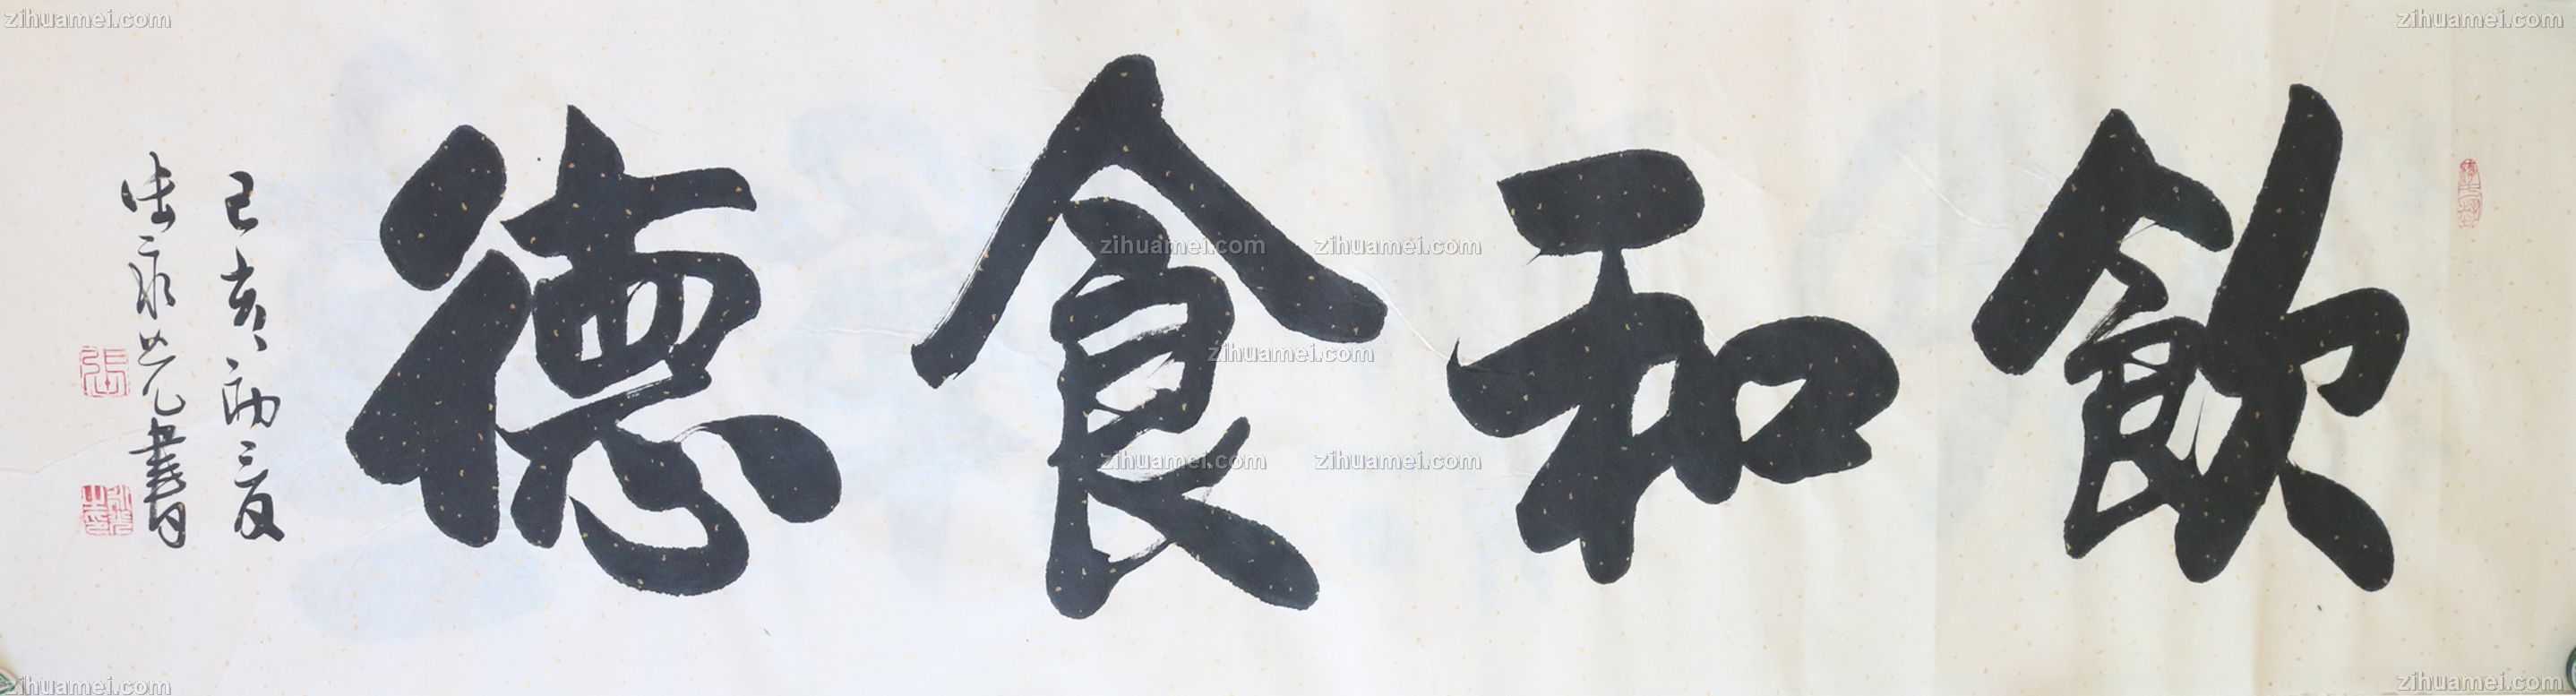 飲和食德
己亥初夏
張永光書
張
zihuamei.com
zihuamei.com
zihuamei.com
zihuamei.com
zihuamei.com
zihuamei.com
zihuamei.com
zihuamei.com
zihuamei.com